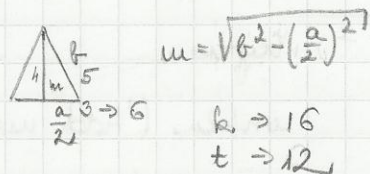 4 m b 5
a/2 3 → 6
m = √(b² - (a/2)²)
k. → 16
t → 12